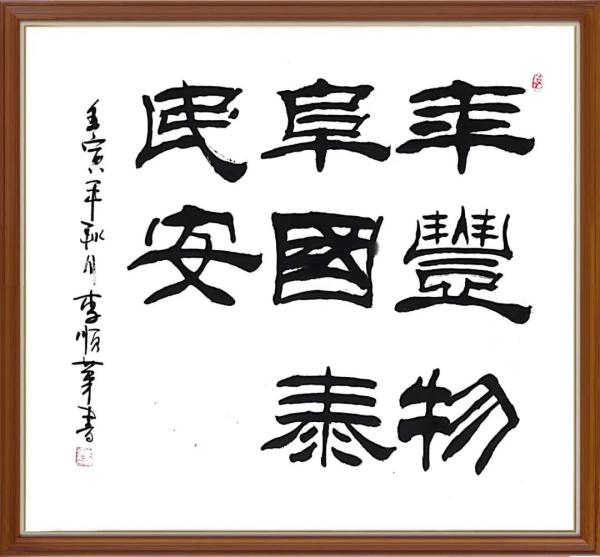 年豐物
阜國泰
民安
壬寅年秋月李順華書